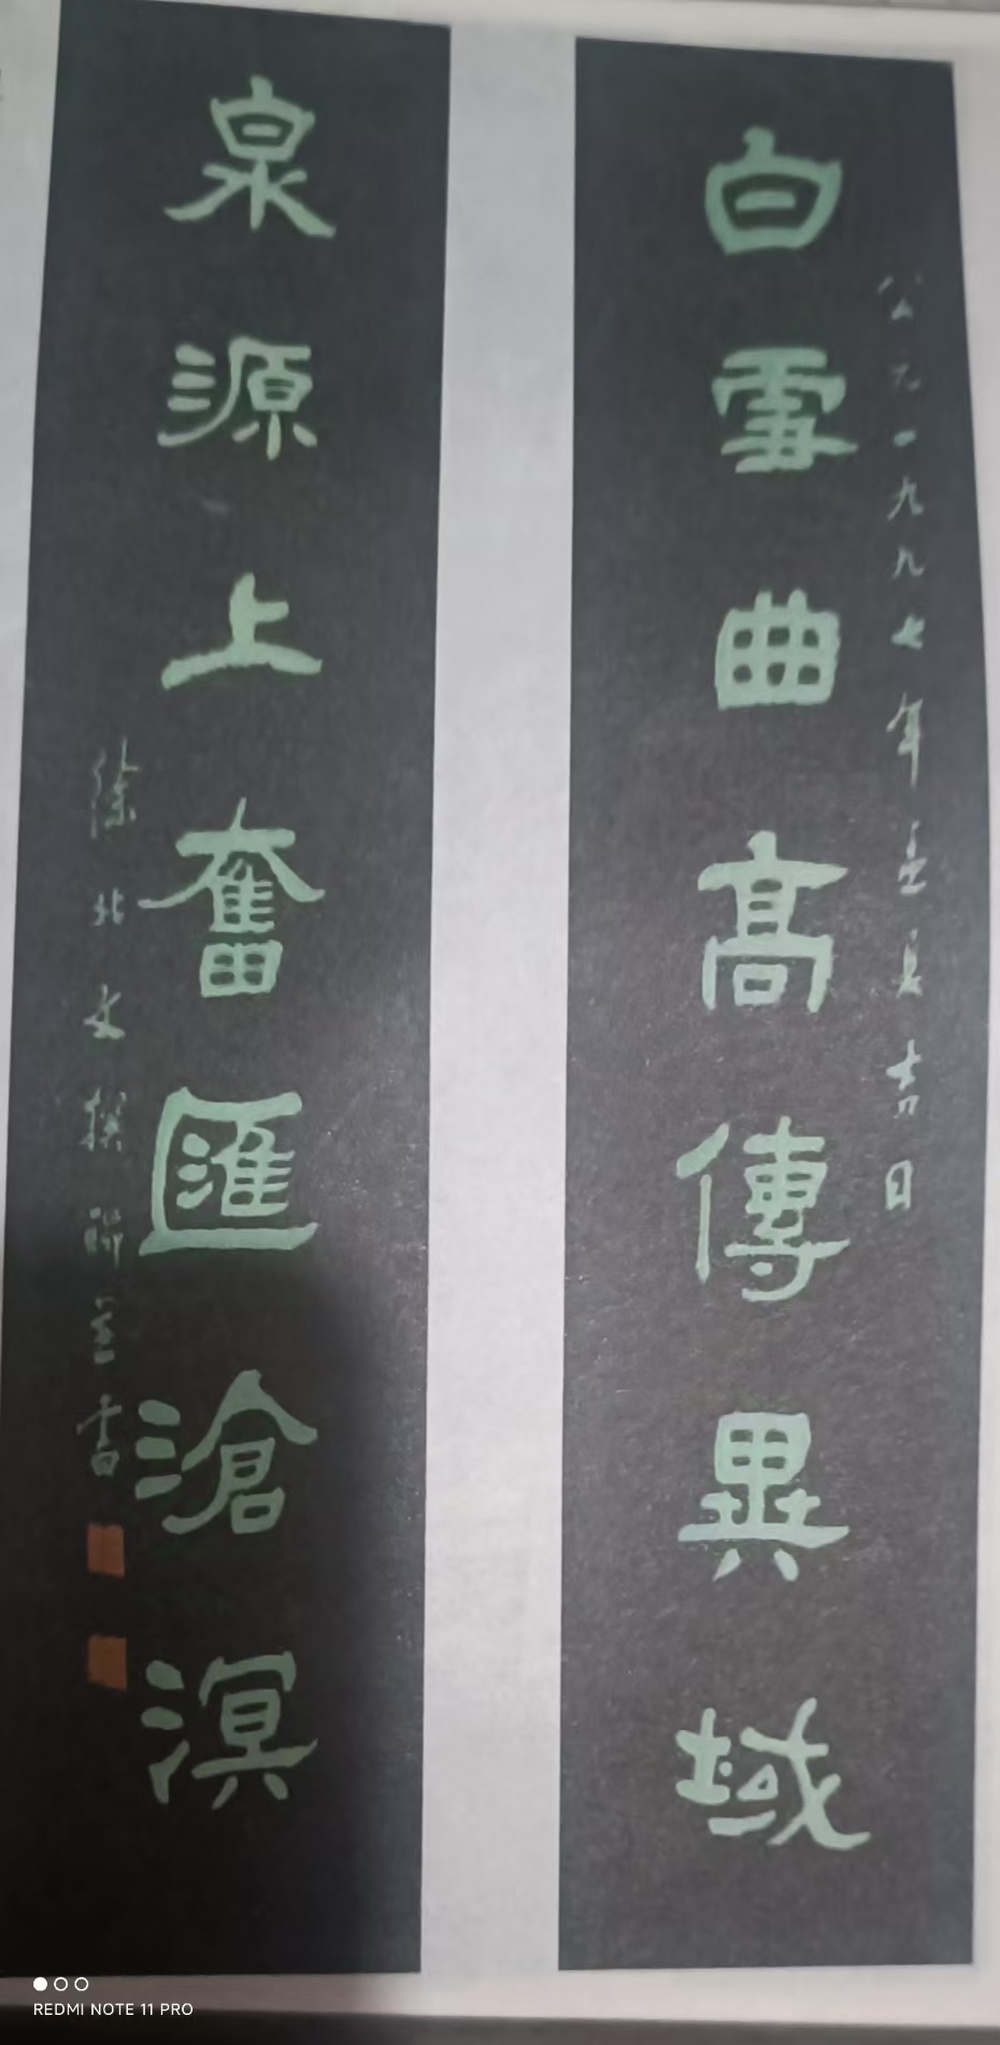 公元一九九七年吉日
白雪曲高傳異域
泉源上奮匯滄溟
徐北文撰聯並書
REDMI NOTE 11 PRO